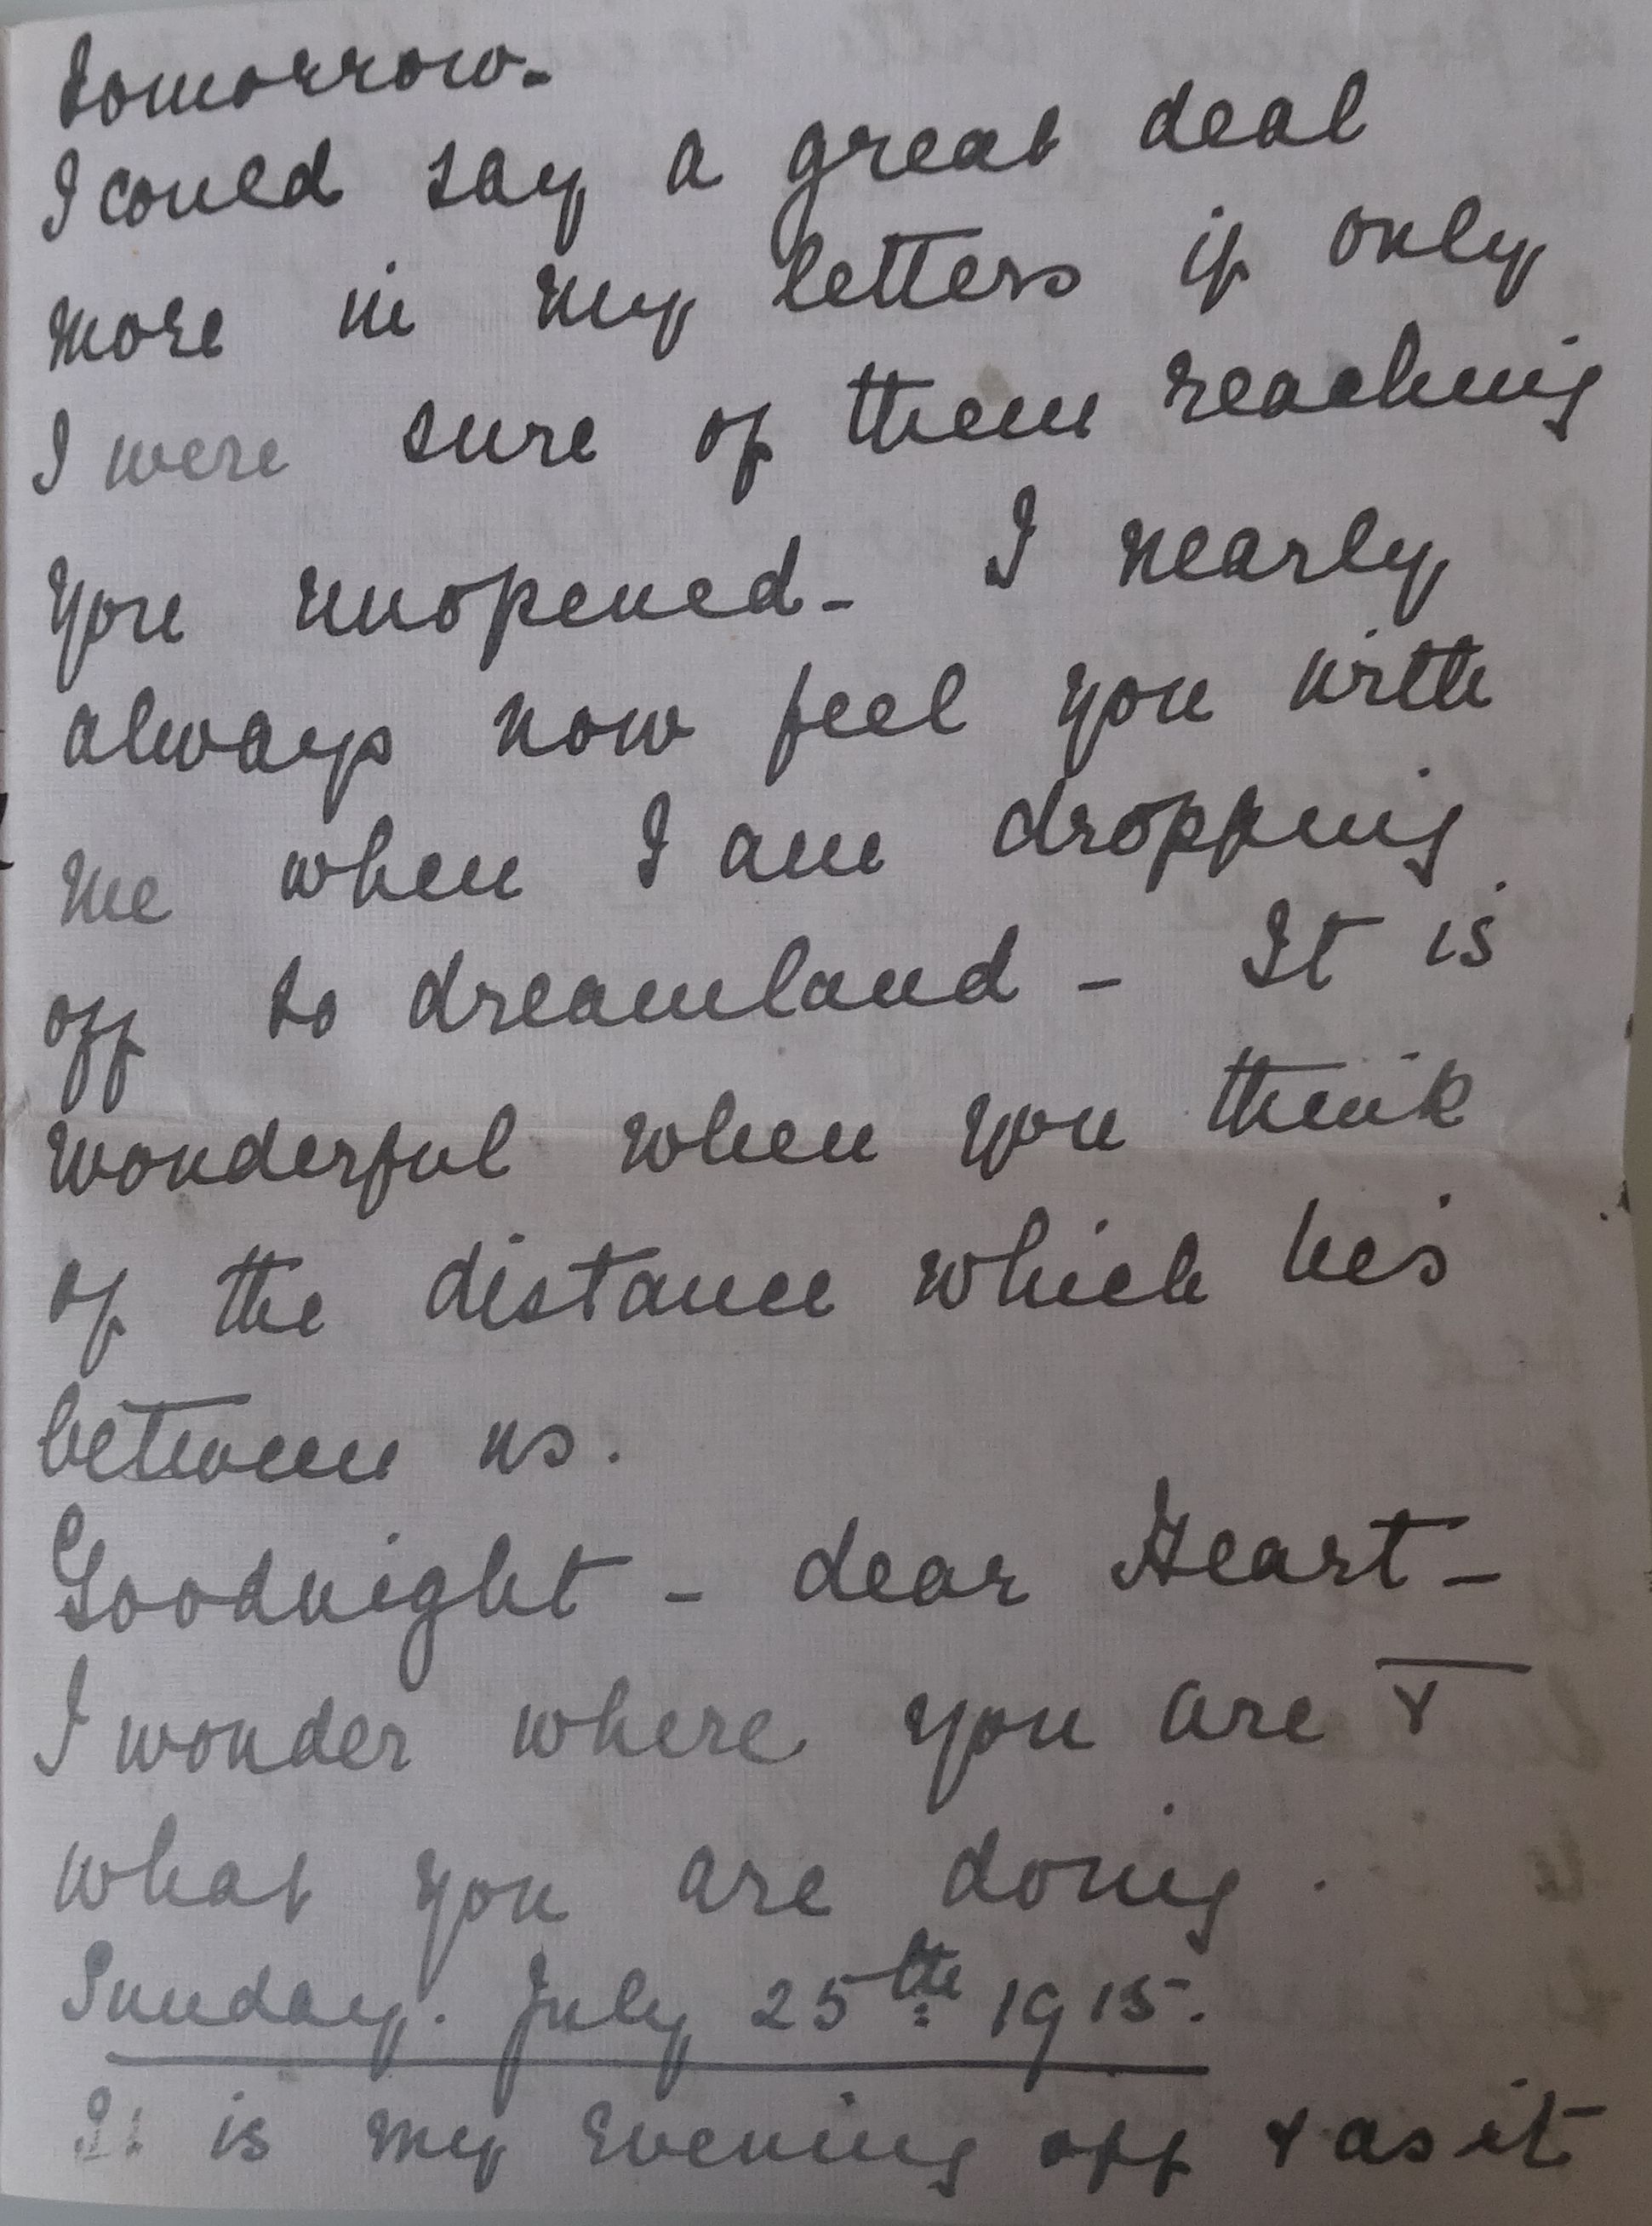 tomorrow -
I could say a great deal
more in my letters if only
I were sure of them reaching
you unopened - I nearly
always now feel you with
me when I am dropping
off to dreamland - It is
wonderful when you think
of the distance which lies
between us.
Goodnight - dear Heart -
I wonder where you are &
what you are doing.
Sunday. July 25th 1915.
It is my Evening off & as it